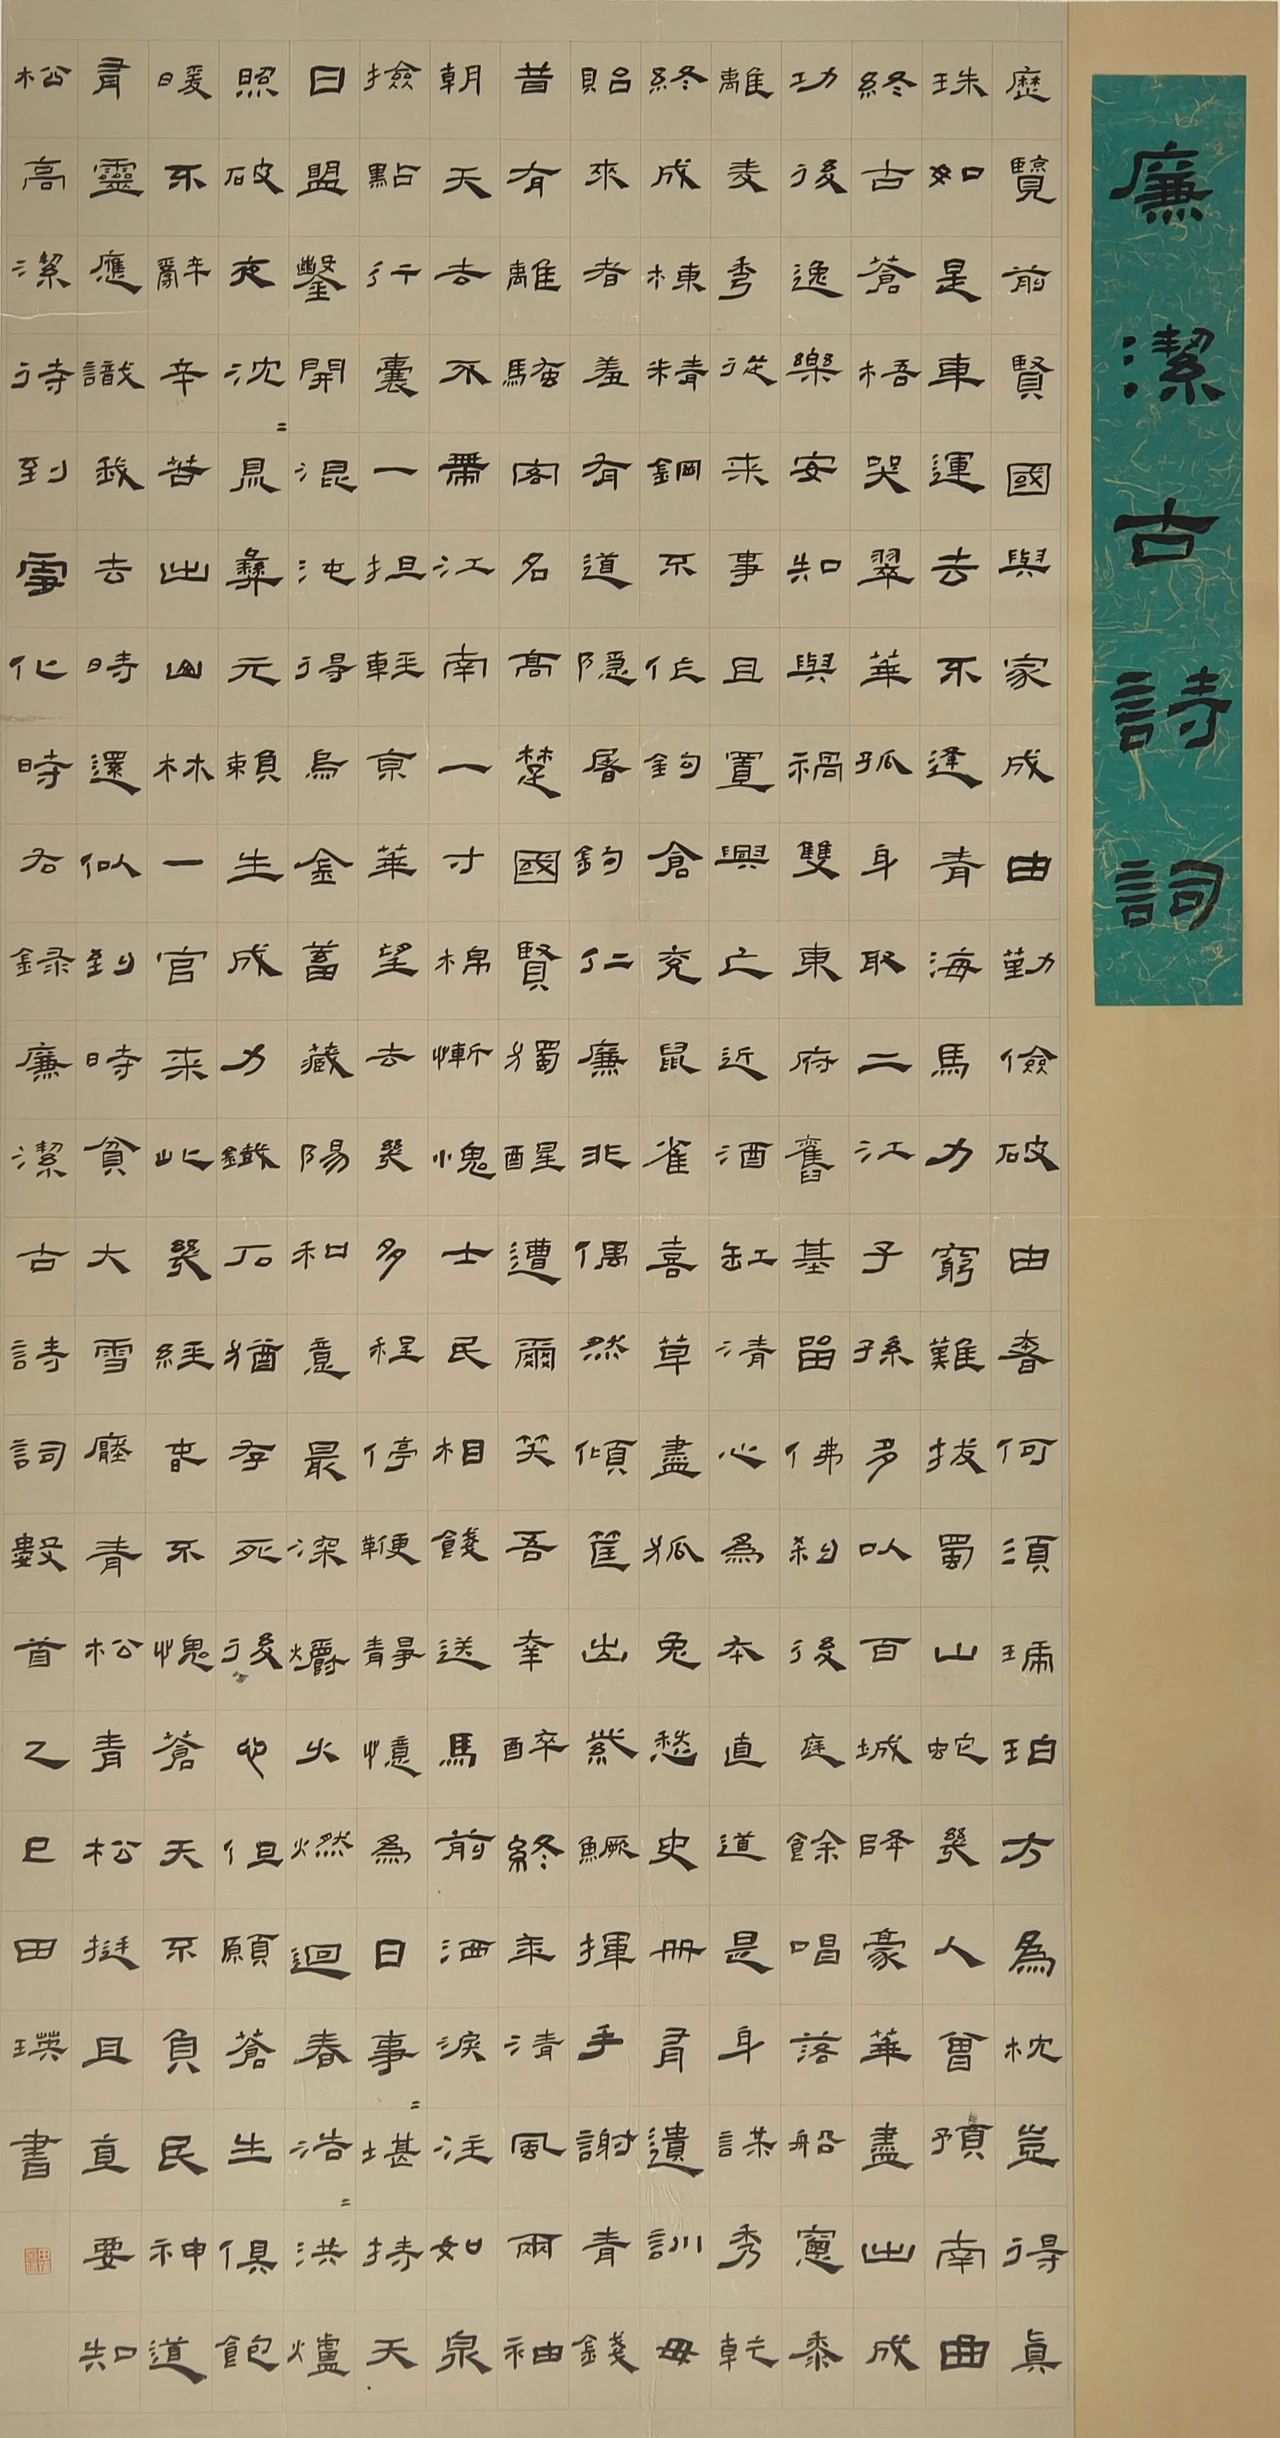 廉潔古詩詞
歷覽前賢國與家成由勤儉破由奢何須琥珀方為枕豈得真
珠如是車運去不逢青海馬力窮難拔蜀山蛇幾人曾預南曲
終古蒼梧哭翠華孤身取二江子孫多以百城降豪華盡出成
功後逸樂安知與禍雙東府舊基留佛刹後庭餘唱落船窻黍
離麦秀從来事且置興亡近酒缸清心為本直道是身謀秀乾
終成棟精鋼不作鈎倉充鼠雀喜草盡狐兔愁史册有遺訓毋
貽來者羞有道隱屠鈎仁廉非偶然傾筐出紫鱖揮手謝青錢
昔有離騷客名高楚國賢獨醒遭爾笑吾幸醉終年清風兩袖
朝天去不帶江南一寸棉慚愧士民相餞送馬前洒淚注如泉
撿點行囊一担輕京華望去幾多程停鞭靜憶為日事=堪持天
日盟鑿開混沌得烏金蓄藏陽和意最深爝火燃迴春浩=洪爐
照破夜沈=鼎彝元賴生成力鐵石猶存死後心但願蒼生俱飽
暖不辭辛苦出山林一官来此幾經春不愧蒼天不負民神道
有靈應識我去時還似到時貧大雪壓青松青松挺且直要知
松高潔待到雪化時右録廉潔古詩詞數首乙巳田瑛書